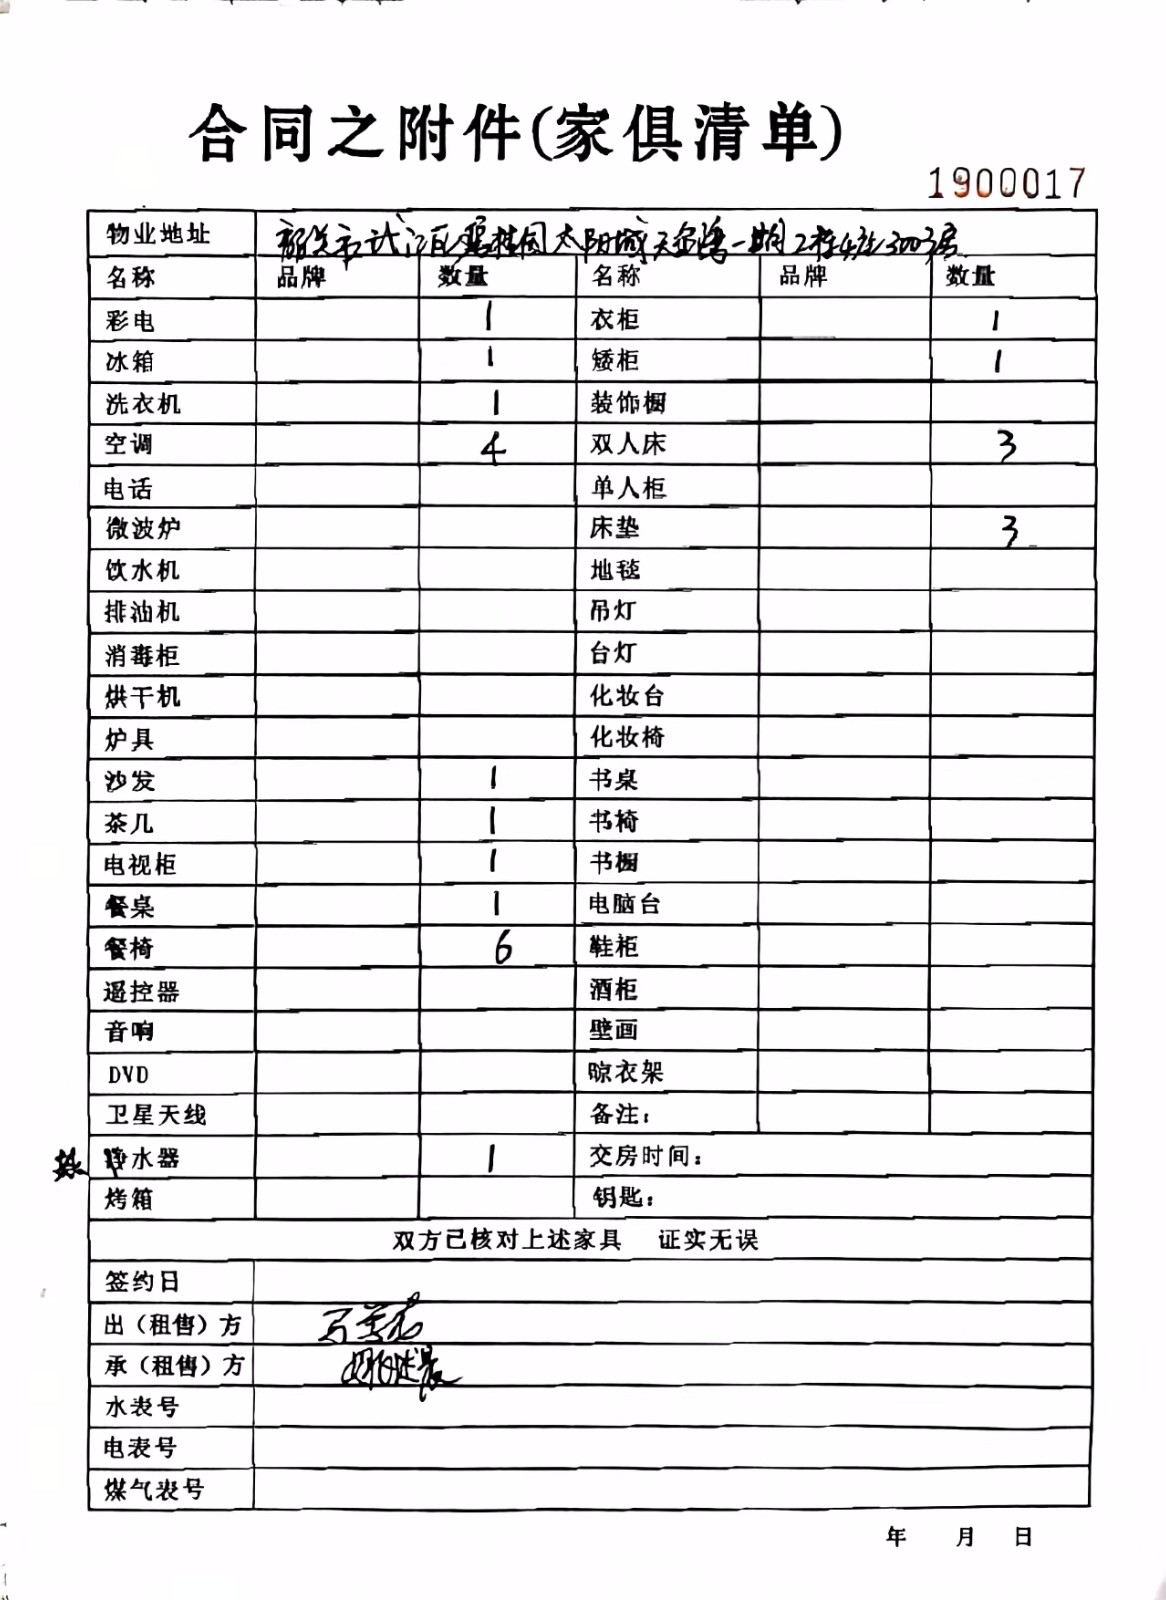 合同之附件(家俱清单)
1900017
物业地址 韶关市武江区碧桂园太阳城天玺湾一期2栋4座3003房
名称 品牌 数量 名称 品牌 数量
彩电 1 衣柜 1
冰箱 1 矮柜 1
洗衣机 1 装饰橱
空调 4 双人床 3
电话 单人柜
微波炉 床垫 3
饮水机 地毯
排油机 吊灯
消毒柜 台灯
烘干机 化妆台
炉具 化妆椅
沙发 1 书桌
茶几 1 书椅
电视柜 1 书橱
餐桌 1 电脑台
餐椅 6 鞋柜
遥控器 酒柜
音响 壁画
DVD 晾衣架
卫星天线 备注:
热水器 1 交房时间:
烤箱 钥匙:
双方已核对上述家具 证实无误
签约日
出(租售)方
承(租售)方
水表号
电表号
煤气表号
年 月 日